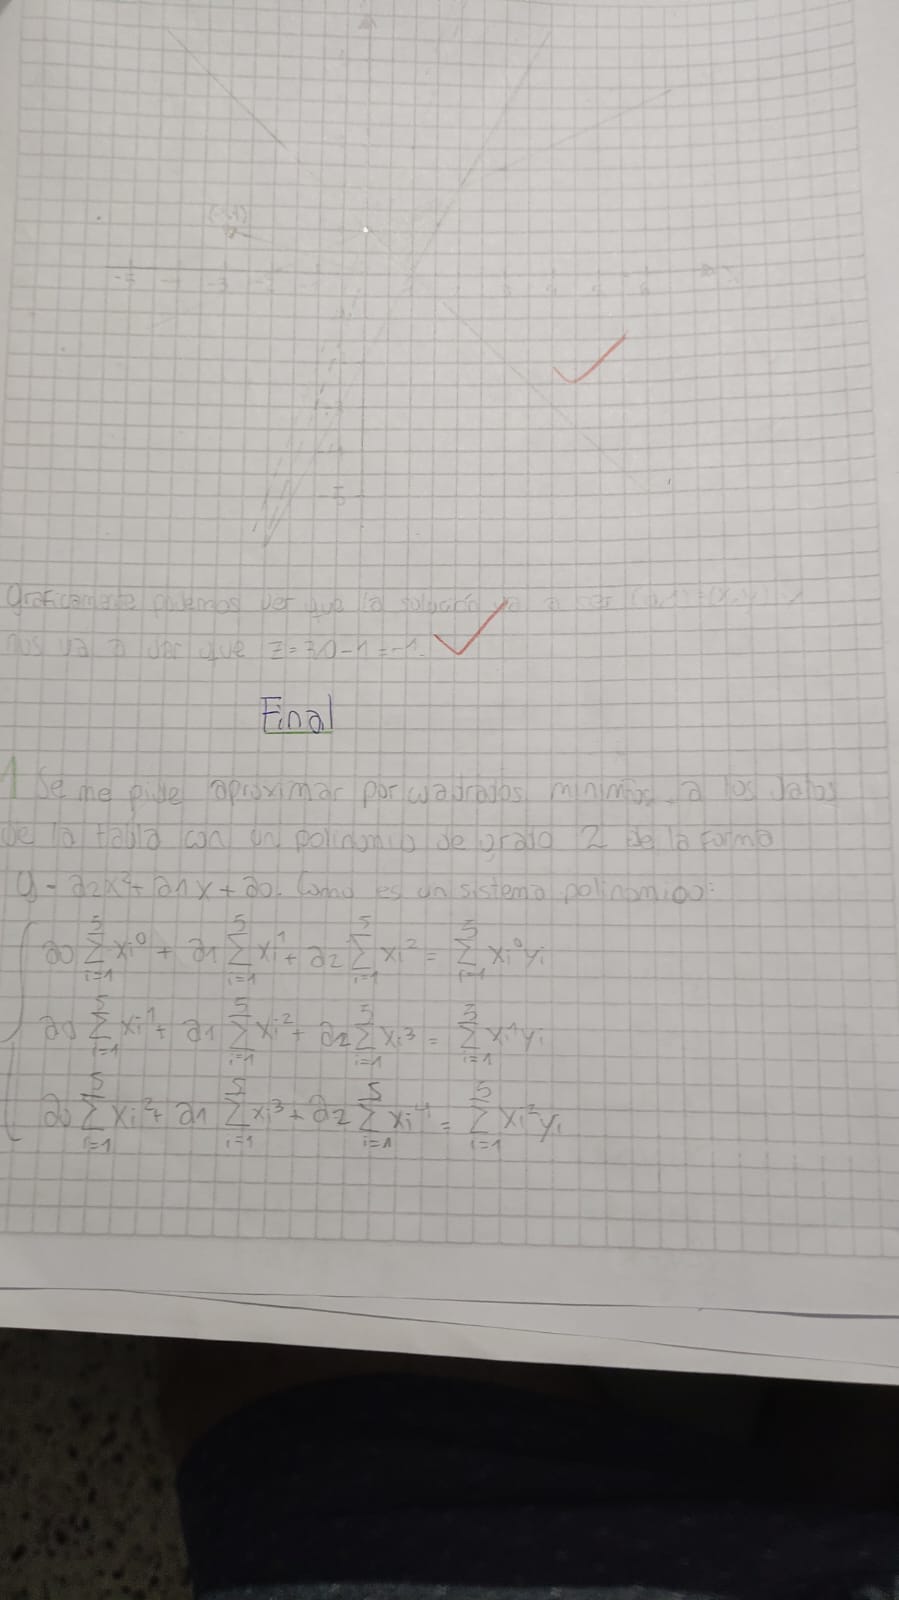 -5
Graficamente podemos ver que la solución va a ser
nos va a dar que z = 3.0 - 1 = -1.
Final
1 Se me pide aproximar por cuadrados minimos a los datos
de la tabla con un polinomio de grado 2 de la forma
y = a2x² + a1x + a0. Como es un sistema polinomico:
a0 5∑i=1 xi⁰ + a1 5∑i=1 xi¹ + a2 5∑i=1 xi² = 5∑i=1 xi⁰yi
a0 5∑i=1 xi¹ + a1 5∑i=1 xi² + a2 5∑i=1 xi³ = 5∑i=1 xi¹yi
a0 5∑i=1 xi² + a1 5∑i=1 xi³ + a2 5∑i=1 xi⁴ = 5∑i=1 xi²yi